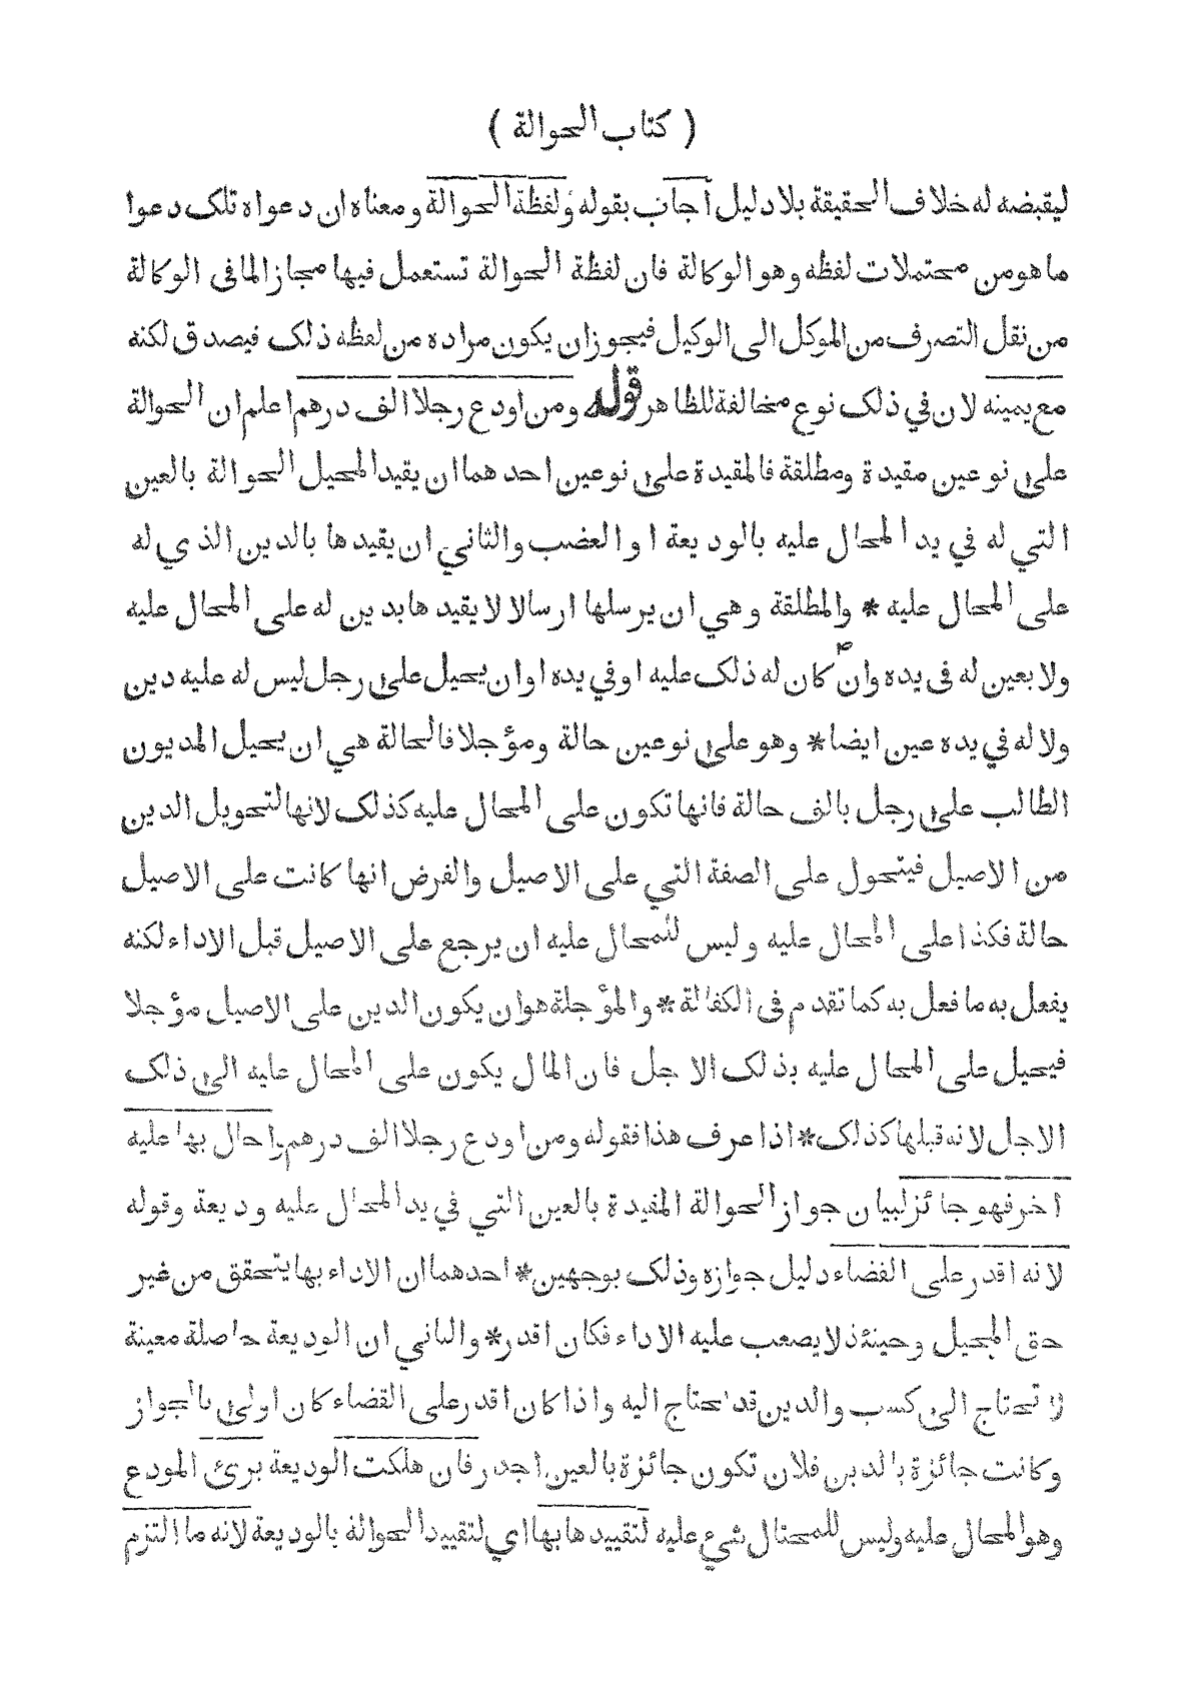 ( كتاب الحوالة )
ليقبضه له خلاف الحقيقة بلا دليل أجاب بقوله ولفظة الحوالة ومعناه ان دعواه تلك دعوا
ما هو من محتملات لفظه وهو الوكالة فان لفظة الحوالة تستعمل فيها مجازا لما فى الوكالة
من نقل التصرف من الموكل الى الوكيل فيجوز ان يكون مراده من لفظه ذلك فيصدق لكنه
مع يمينه لان في ذلك نوع مخالفة للظاهر قوله ومن اودع رجلا الف درهم اعلم ان الحوالة
على نوعين مقيدة ومطلقة فالمقيدة على نوعين احدهما ان يقيد المحيل الحوالة بالعين
التي له في يد المحال عليه بالوديعة او الغصب والثاني ان يقيدها بالدين الذي له
على المحال عليه * والمطلقة وهي ان يرسلها ارسالا لا يقيدها بدين له على المحال عليه
ولا بعين له فى يده وان كان له ذلك عليه او في يده او ان يحيل على رجل ليس له عليه دين
ولا له في يده عين ايضا * وهو على نوعين حالة ومؤجلا فالحالة هي ان يحيل المديون
الطالب على رجل بالف حالة فانها تكون على المحال عليه كذلك لانها لتحويل الدين
من الاصيل فيتحول على الصفة التي على الاصيل والفرض انها كانت على الاصيل
حالة فكذا على المحال عليه وليس للمحال عليه ان يرجع على الاصيل قبل الاداء لكنه
يفعل به ما فعل به كما تقدم فى الكفالة * والمؤجلة هو ان يكون الدين على الاصيل مؤجلا
فيحيل على المحال عليه بذلك الاجل فان المال يكون على المحال عليه الى ذلك
الاجل لانه قبلها كذلك * اذا عرف هذا فقوله ومن اودع رجلا الف درهم واحال بها عليه
اخر فهو جائز لبيان جواز الحوالة المقيدة بالعين التي في يد المحال عليه وديعة وقوله
لانه اقدر على القضاء دليل جوازه وذلك بوجهين * احدهما ان الاداء بها يتحقق من غير
حق المحيل وحينئذ لا يصعب عليه الاداء فكان اقدر * والثاني ان الوديعة حاصلة معينة
لا تحتاج الى كسب والدين قد يحتاج اليه واذا كان اقدر على القضاء كان اولى بالجواز
وكانت جائزة بالدين فلان تكون جائزة بالعين اجدر فان هلكت الوديعة برئ المودع
وهو المحال عليه وليس للمحتال شيء عليه لتقييدها بها اي لتقييد الحوالة بالوديعة لانه ما التزم